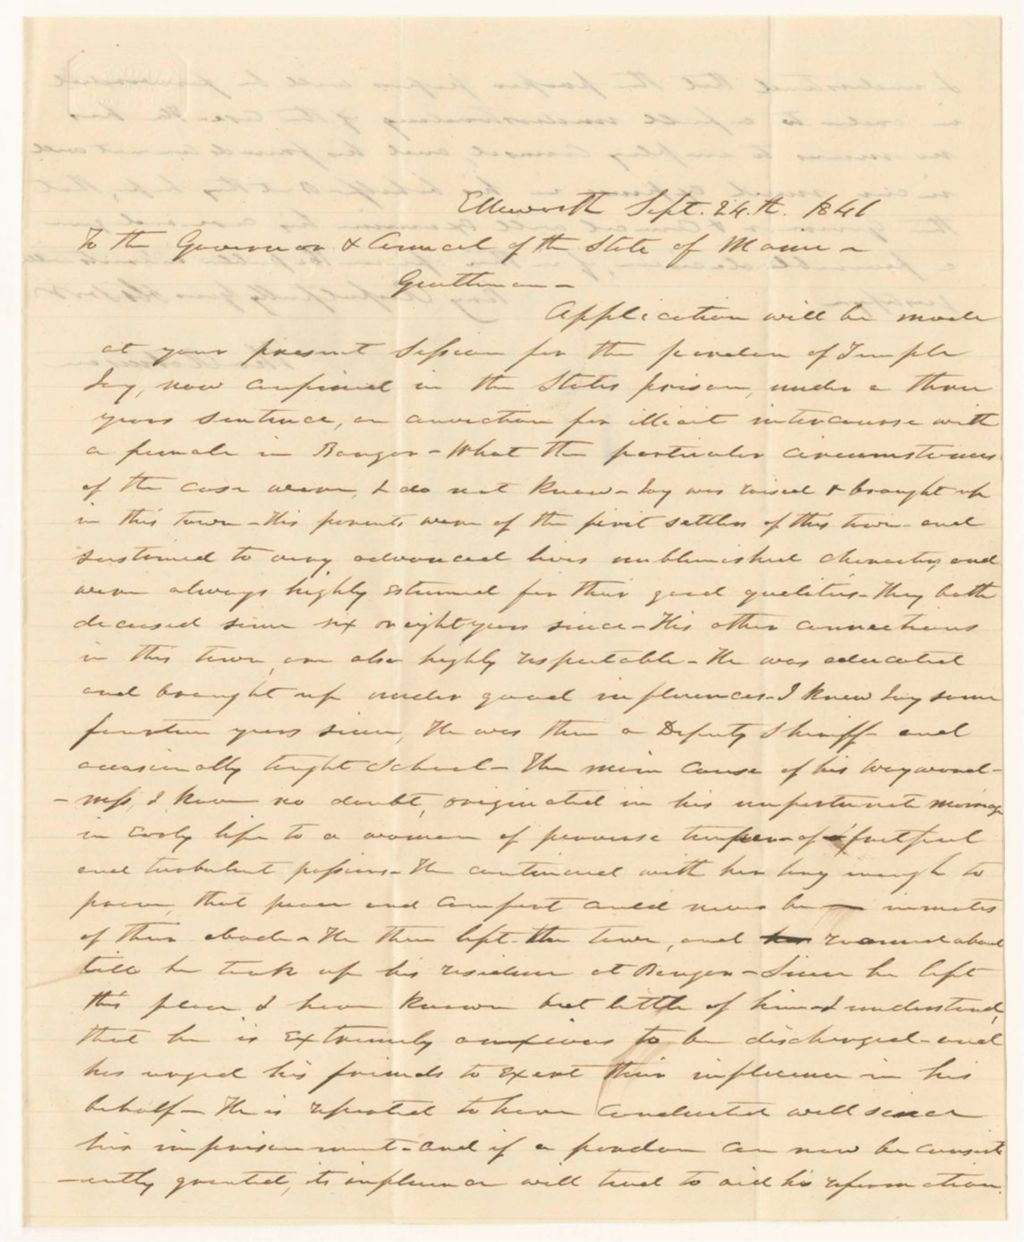 Ellsworth Sept. 24.th. 1846
To the Governor & Council of the State of Maine -
Gentlemen -
Application will be made
at your present Session for the pardon of Temple
Ivy, now confined in the States prison, under a three
years sentence, on conviction for illicit intercourse with
a female in Bangor - What the particular circumstances
of the case were, I do not know - Ivy was raised & brought up
in this town - His parents were of the first settlers of this town - and
sustained to very advanced lives unblemished characters, and
were always highly esteemed for their good qualities - They both
deceased some six or eight years since - His other connections
in this town, are also highly respectable - He was educated
and brought up under good influences - I knew Ivy some
fourteen years since, He was then a Deputy Sheriff - and
occasionally taught School - The main cause of his wayward-
-ness, I have no doubt, originated in his unfortunate marriage
in early life to a woman of perverse temper - of fretful
and turbulent passions - He continued with her long enough to
prove, that peace and comfort could never be inmates
of their abode - He then left the town, and roamed about
till he took up his residence at Bangor - Since he left
this place I have known but little of him - I understand,
that he is extremely anxious to be discharged - and
has urged his friends to exert their influence in his
behalf - He is reported to have conducted well since
his imprisonment - and if a pardon can now be consist
-ently granted, its influence will tend to aid his reformation.